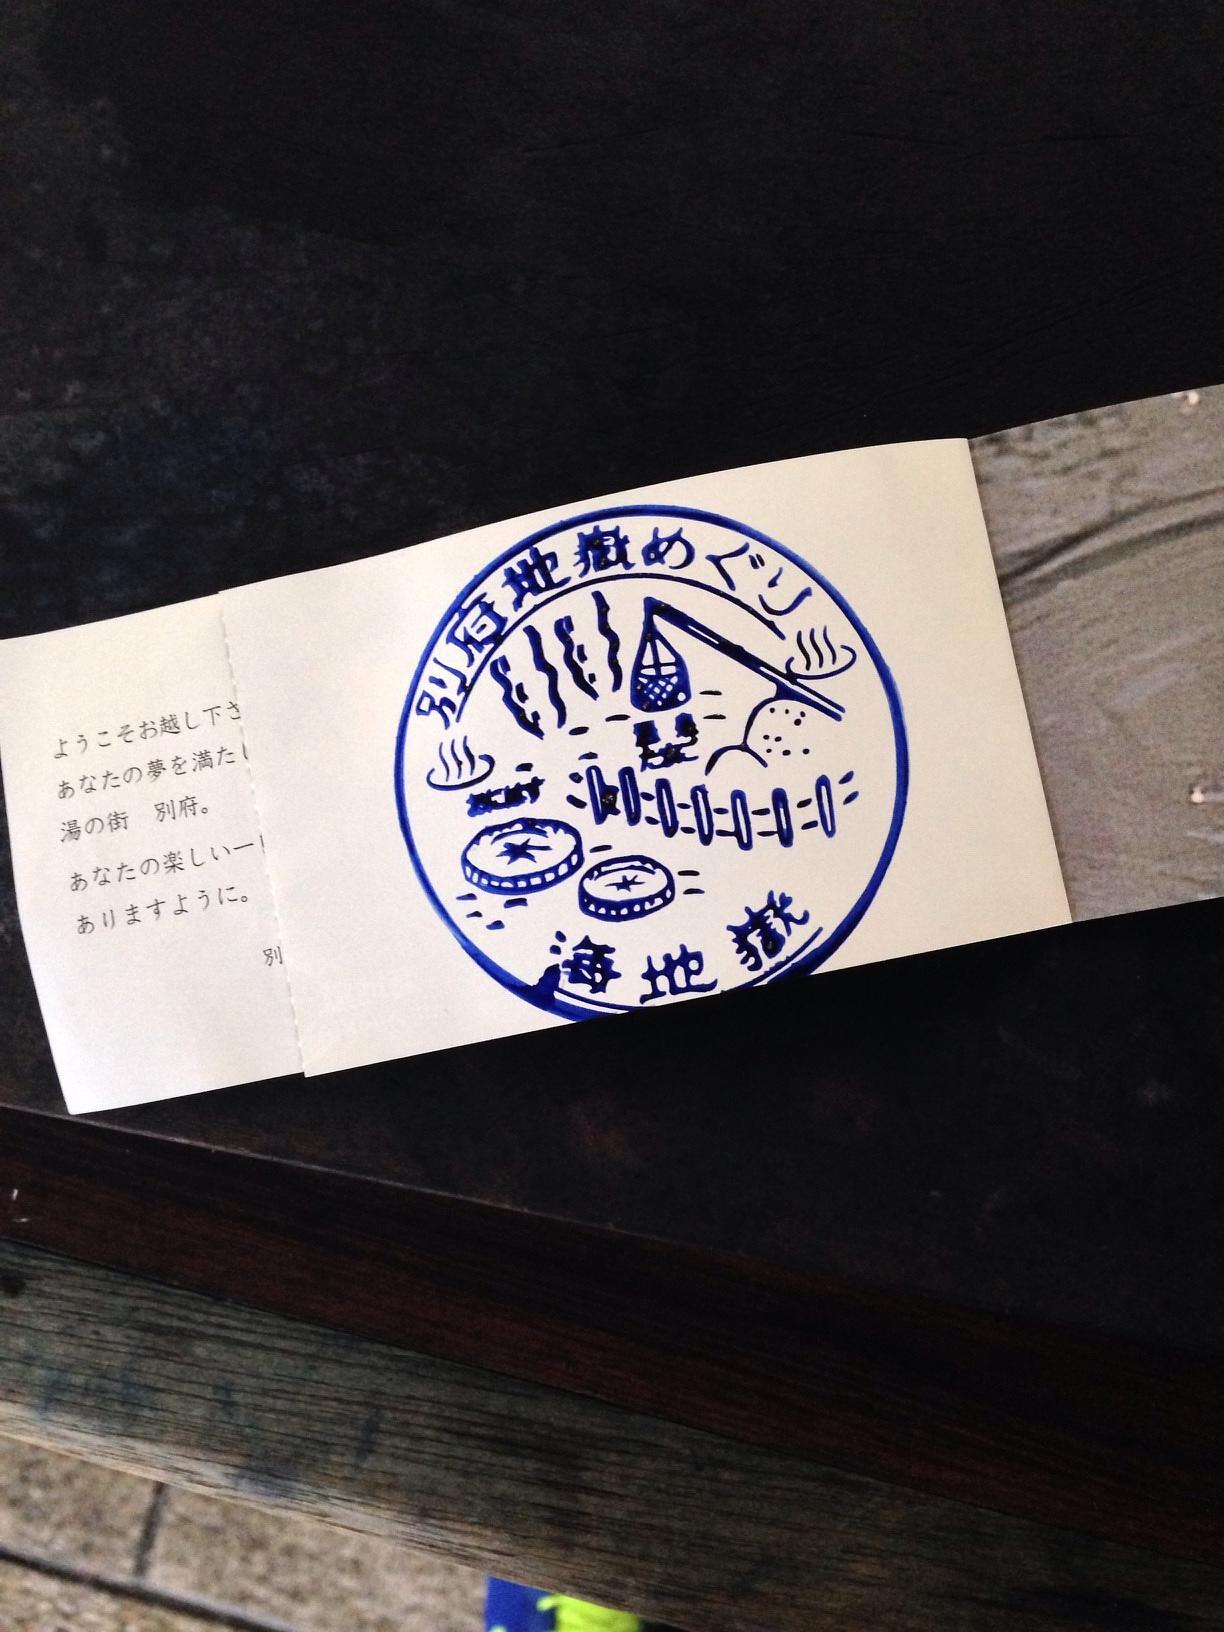 ようこそお越し下さ
あなたの夢を満たし
湯の街　別府。
あなたの楽しい一
ありますように。
別
別府地獄めぐり
海地獄